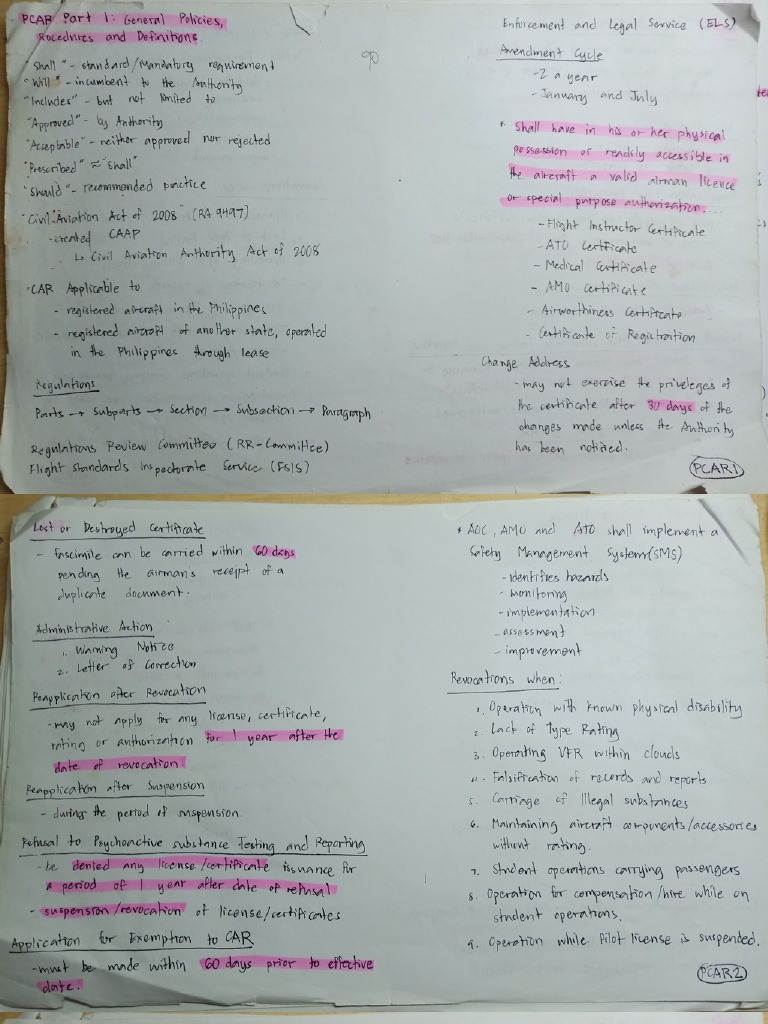 PCAR Part 1: General Policies,
Procedures and Definitions
"Shall" - standard/Mandatory requirement
"Will" - incumbent to the Authority
"Includes" - but not limited to
"Approved" - by Authority
"Acceptable" - neither approved nor rejected
"Prescribed" ≈ "shall"
"Should" - recommended practice
"Civil Aviation Act of 2008" (RA 9497)
- created CAAP
↳ Civil Aviation Authority Act of 2008
CAR Applicable to
- registered aircraft in the Philippines
- registered aircraft of another state, operated
in the Philippines through lease
Regulations
Parts → Subparts → Section → Subsection → Paragraph
Regulations Review Committee (RR-Committee)
Flight Standards Inspectorate Service (FSIS)
90
Enforcement and Legal Service (ELS)
Amendment Cycle
- 2 a year
- January and July
* Shall have in his or her physical
possession or readily accessible in
the aircraft a valid airman licence
or special purpose authorization....
- Flight Instructor Certificate
- ATO Certificate
- Medical Certificate
- AMO Certificate
- Airworthiness Certificate
- Certificate of Registration
Change Address
- may not exercise the priveleges of
the certificate after 30 days of the
changes made unless the Authority
has been notified.
PCAR1
Lost or Destroyed Certificate
- Fascimile can be carried within 60 days
pending the airman's receipt of a
duplicate document.
Administrative Action
1. Warning Notice
2. Letter of Correction
Reapplication after Revocation
- may not apply for any license, certificate,
rating or authorization for 1 year after the
date of revocation.
Reapplication after Suspension
- during the period of suspension
Refusal to Psychoactive substance Testing and Reporting
- be denied any license/certificate issuance for
a period of 1 year after date of refusal
- suspension/revocation of license/certificates
Application for Exemption to CAR
- must be made within 60 days prior to effective
date.
* AOC, AMO and ATO shall implement a
Safety Management System(SMS)
- identifies hazards
- monitoring
- implementation
- assessment
- improvement
Revocations when:
1. Operation with known physical disability
2. Lack of Type Rating
3. Operating VFR within clouds
4. Falsification of records and reports
5. Carriage of Illegal substances
6. Maintaining aircraft components/accessories
without rating.
7. Student operations carrying passengers
8. Operation for compensation/hire while on
student operations.
9. Operation while Pilot license is suspended.
PCAR2